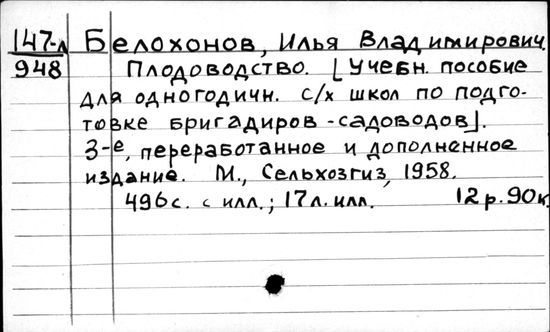 147-л Белохонов, Илья Владимирович
948 Плодоводство. [Учебн. пособие
для одногодичн. с/х школ по подго-
товке бригадиров-садоводов].
3-е, переработанное и дополненное
издание. М., Сельхозгиз, 1958.
496с. с илл.; 17л. илл. 12р.90к.